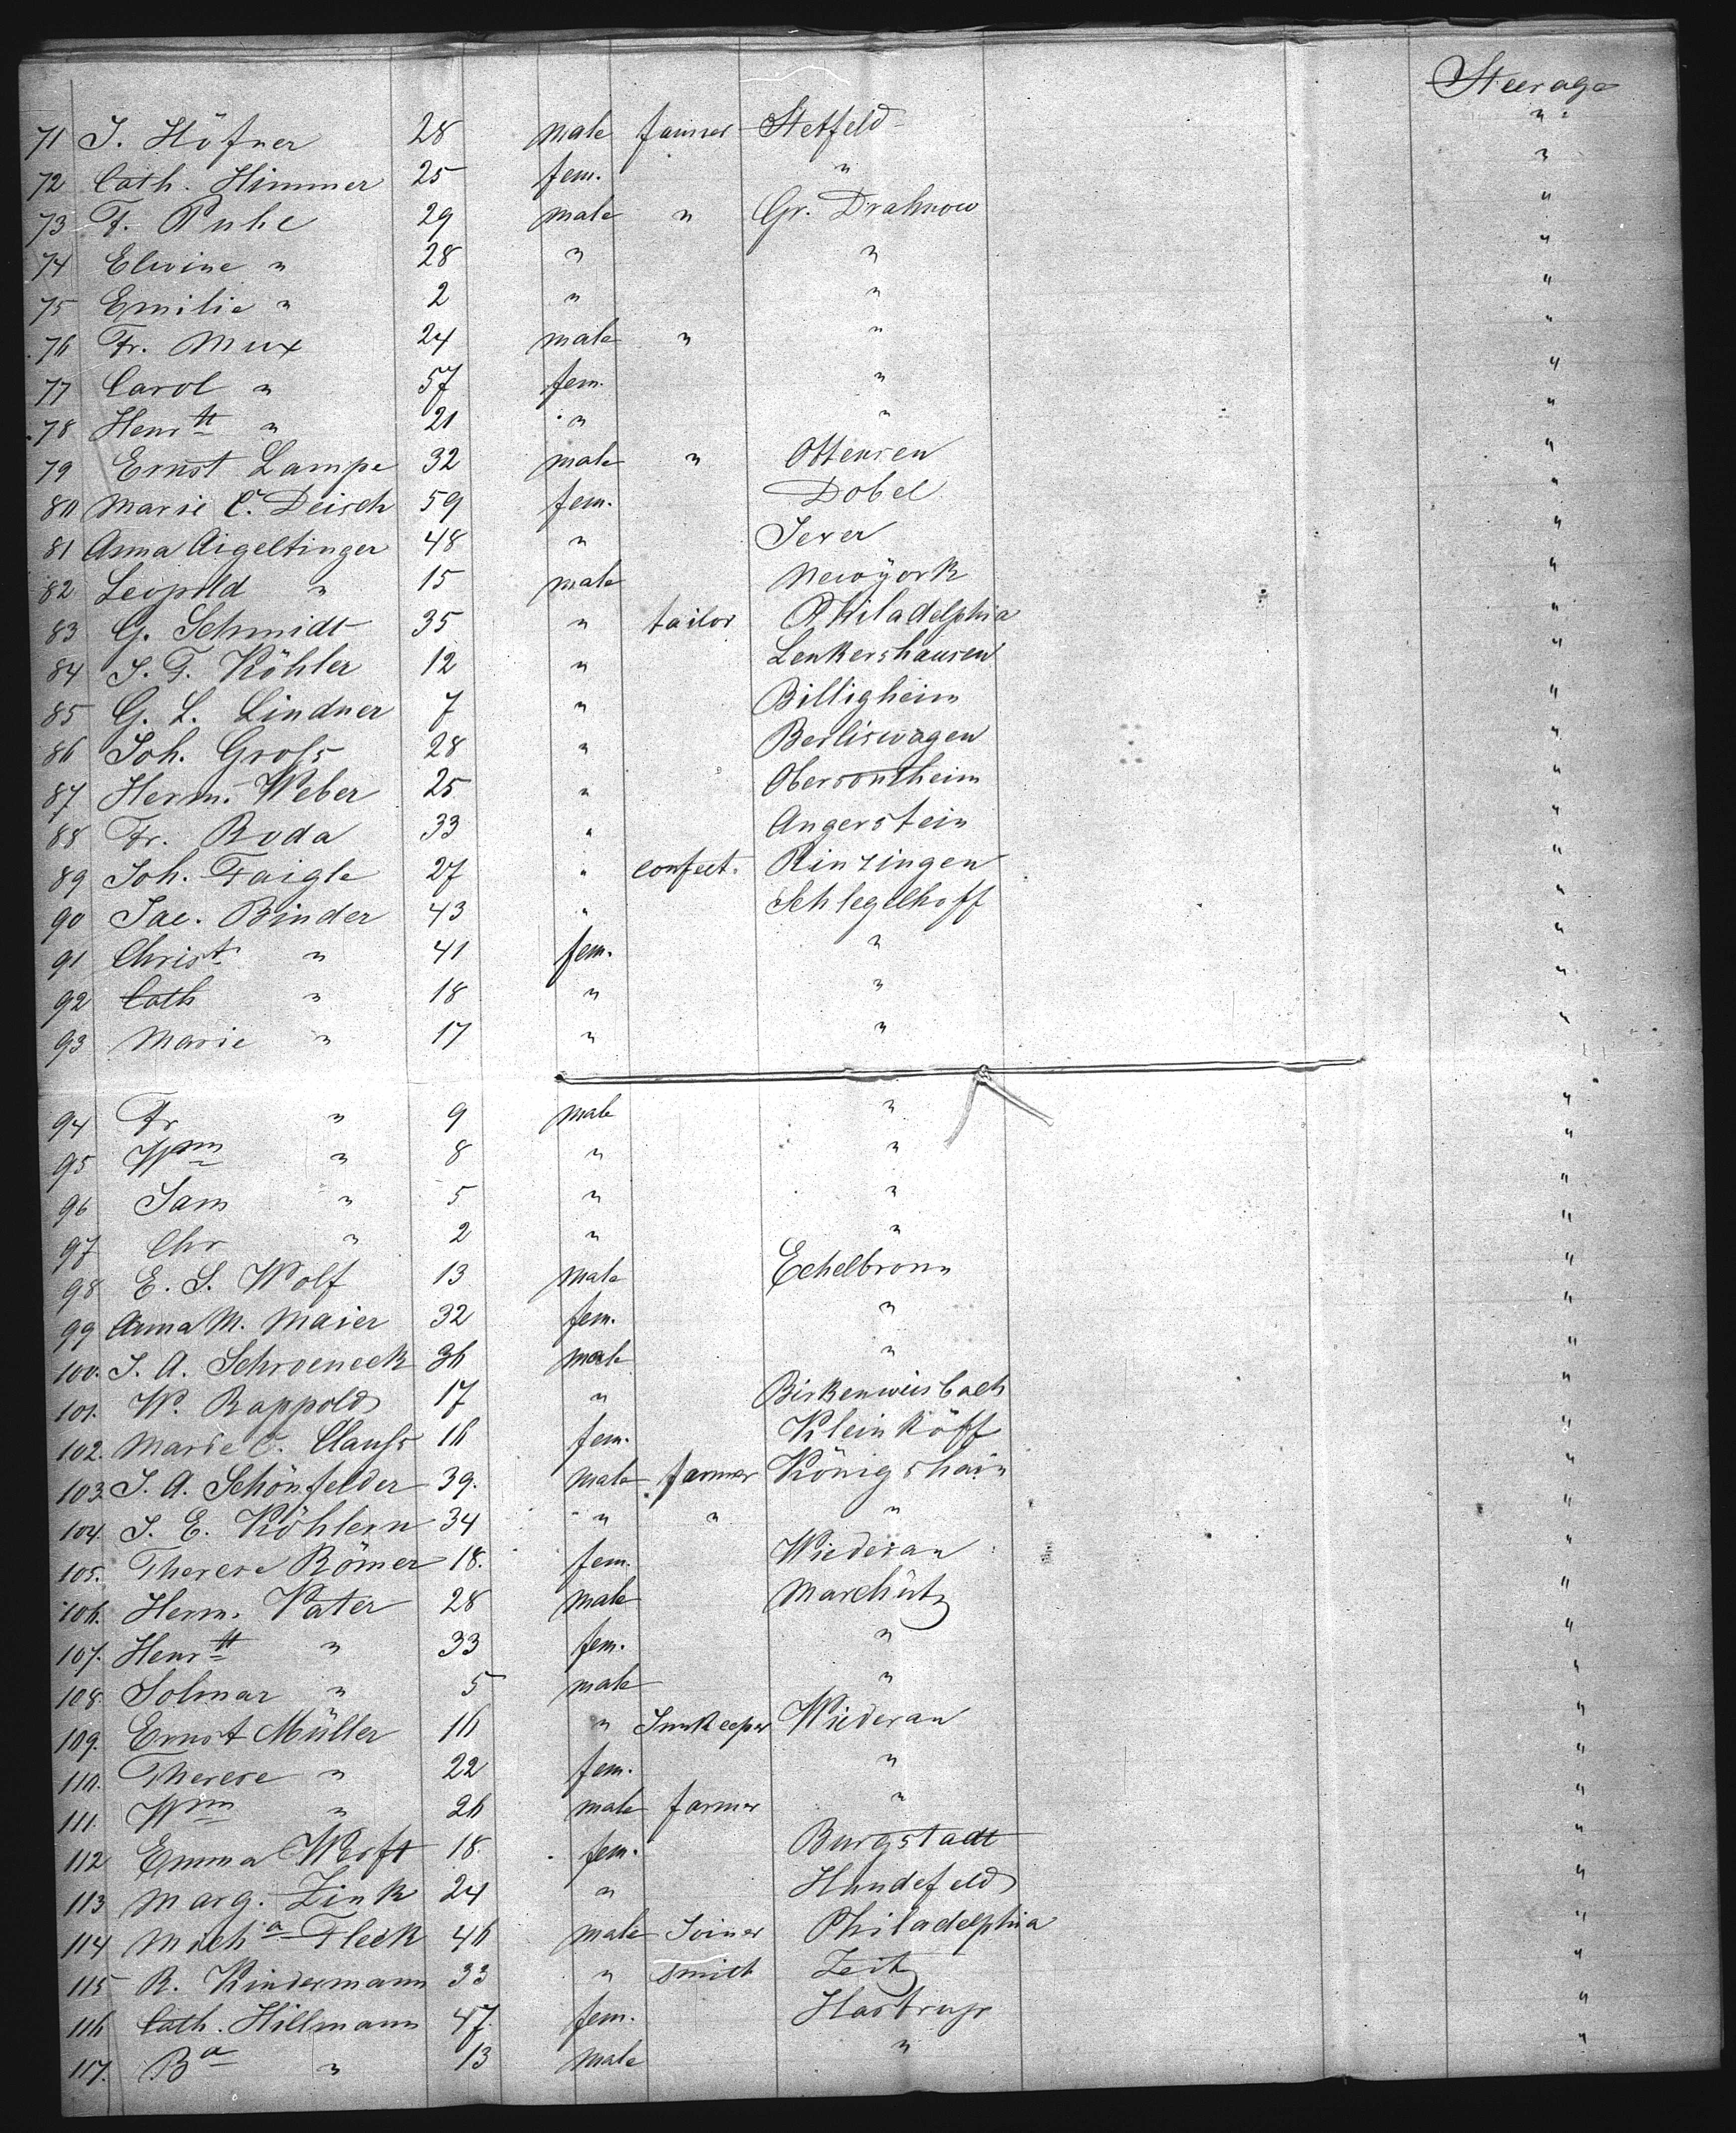 Steerage
71 J. Höfner 28 male farmer Stetfeld "
72 Cath. Himmer 25 fem. " "
73 F. Puhe 29 male " Gr. Drahnow "
74 Elwine " 28 " " "
75 Emilie " 2 " " "
76 Fr. Mux 24 male " " "
77 Carol " 57 fem. " "
78 Henrtt " 21 " " "
79 Ernst Lampe 32 male " Ottensen "
80 Marie C. Deisch 59 fem. Dobel "
81 Anna Aigeltinger 48 " Jever "
82 Leopold " 15 male Newyork "
83 G. Schmidt 35 " tailor Philadelphia "
84 J. F. Köhler 12 " Lenkershausen "
85 G. L. Lindner 7 " Billigheim "
86 Joh. Grofs 28 " Berliswagen "
87 Herm. Weber 25 " Obersontheim "
88 Fr. Boda 33 " Angerstein "
89 Joh. Faigle 27 " confect. Rinzingen "
90 Jac. Binder 43 " Schlegelhoff "
91 Christ. " 41 fem. " "
92 Cath " 18 " " "
93 Marie " 17 " " "
94 Fr " 9 male " "
95 Wm " 8 " " "
96 Sam " 5 " " "
97 Chr " 2 " " "
98 E. S. Wolf 13 male Echelbronn "
99 Anna M. Maier 32 fem. " "
100. J. A. Schroeneck 36 male " "
101. W. Rappold 17 " Birkenweisbach "
102. Marie C. Claufs 16 fem. Klein Köff "
103. J. A. Schönfelder 39. male farmer Königshain "
104. J. E. Köhlern 34 " " " "
105. Therese Römer 18. fem. Wiederau "
106. Herm. Vater 28 male Marchütz "
107. Henrtt " 33 fem. " "
108. Solmar " 5 male " "
109. Ernst Müller 16 " Innkeeper Wiederau "
110. Therese " 22 fem. " "
111. Wm " 26 male farmer " "
112 Emma Werft 18. fem. Burgstadt "
113 Marg. Zink 24 " Hundefeld "
114 Micha Fleck 46 male Joiner Philadelphia "
115 R. Kindermann 33 " smith Zeitz "
116 Cath. Hillmann 47. fem. Hastrup "
117. Ba " 13 male " "